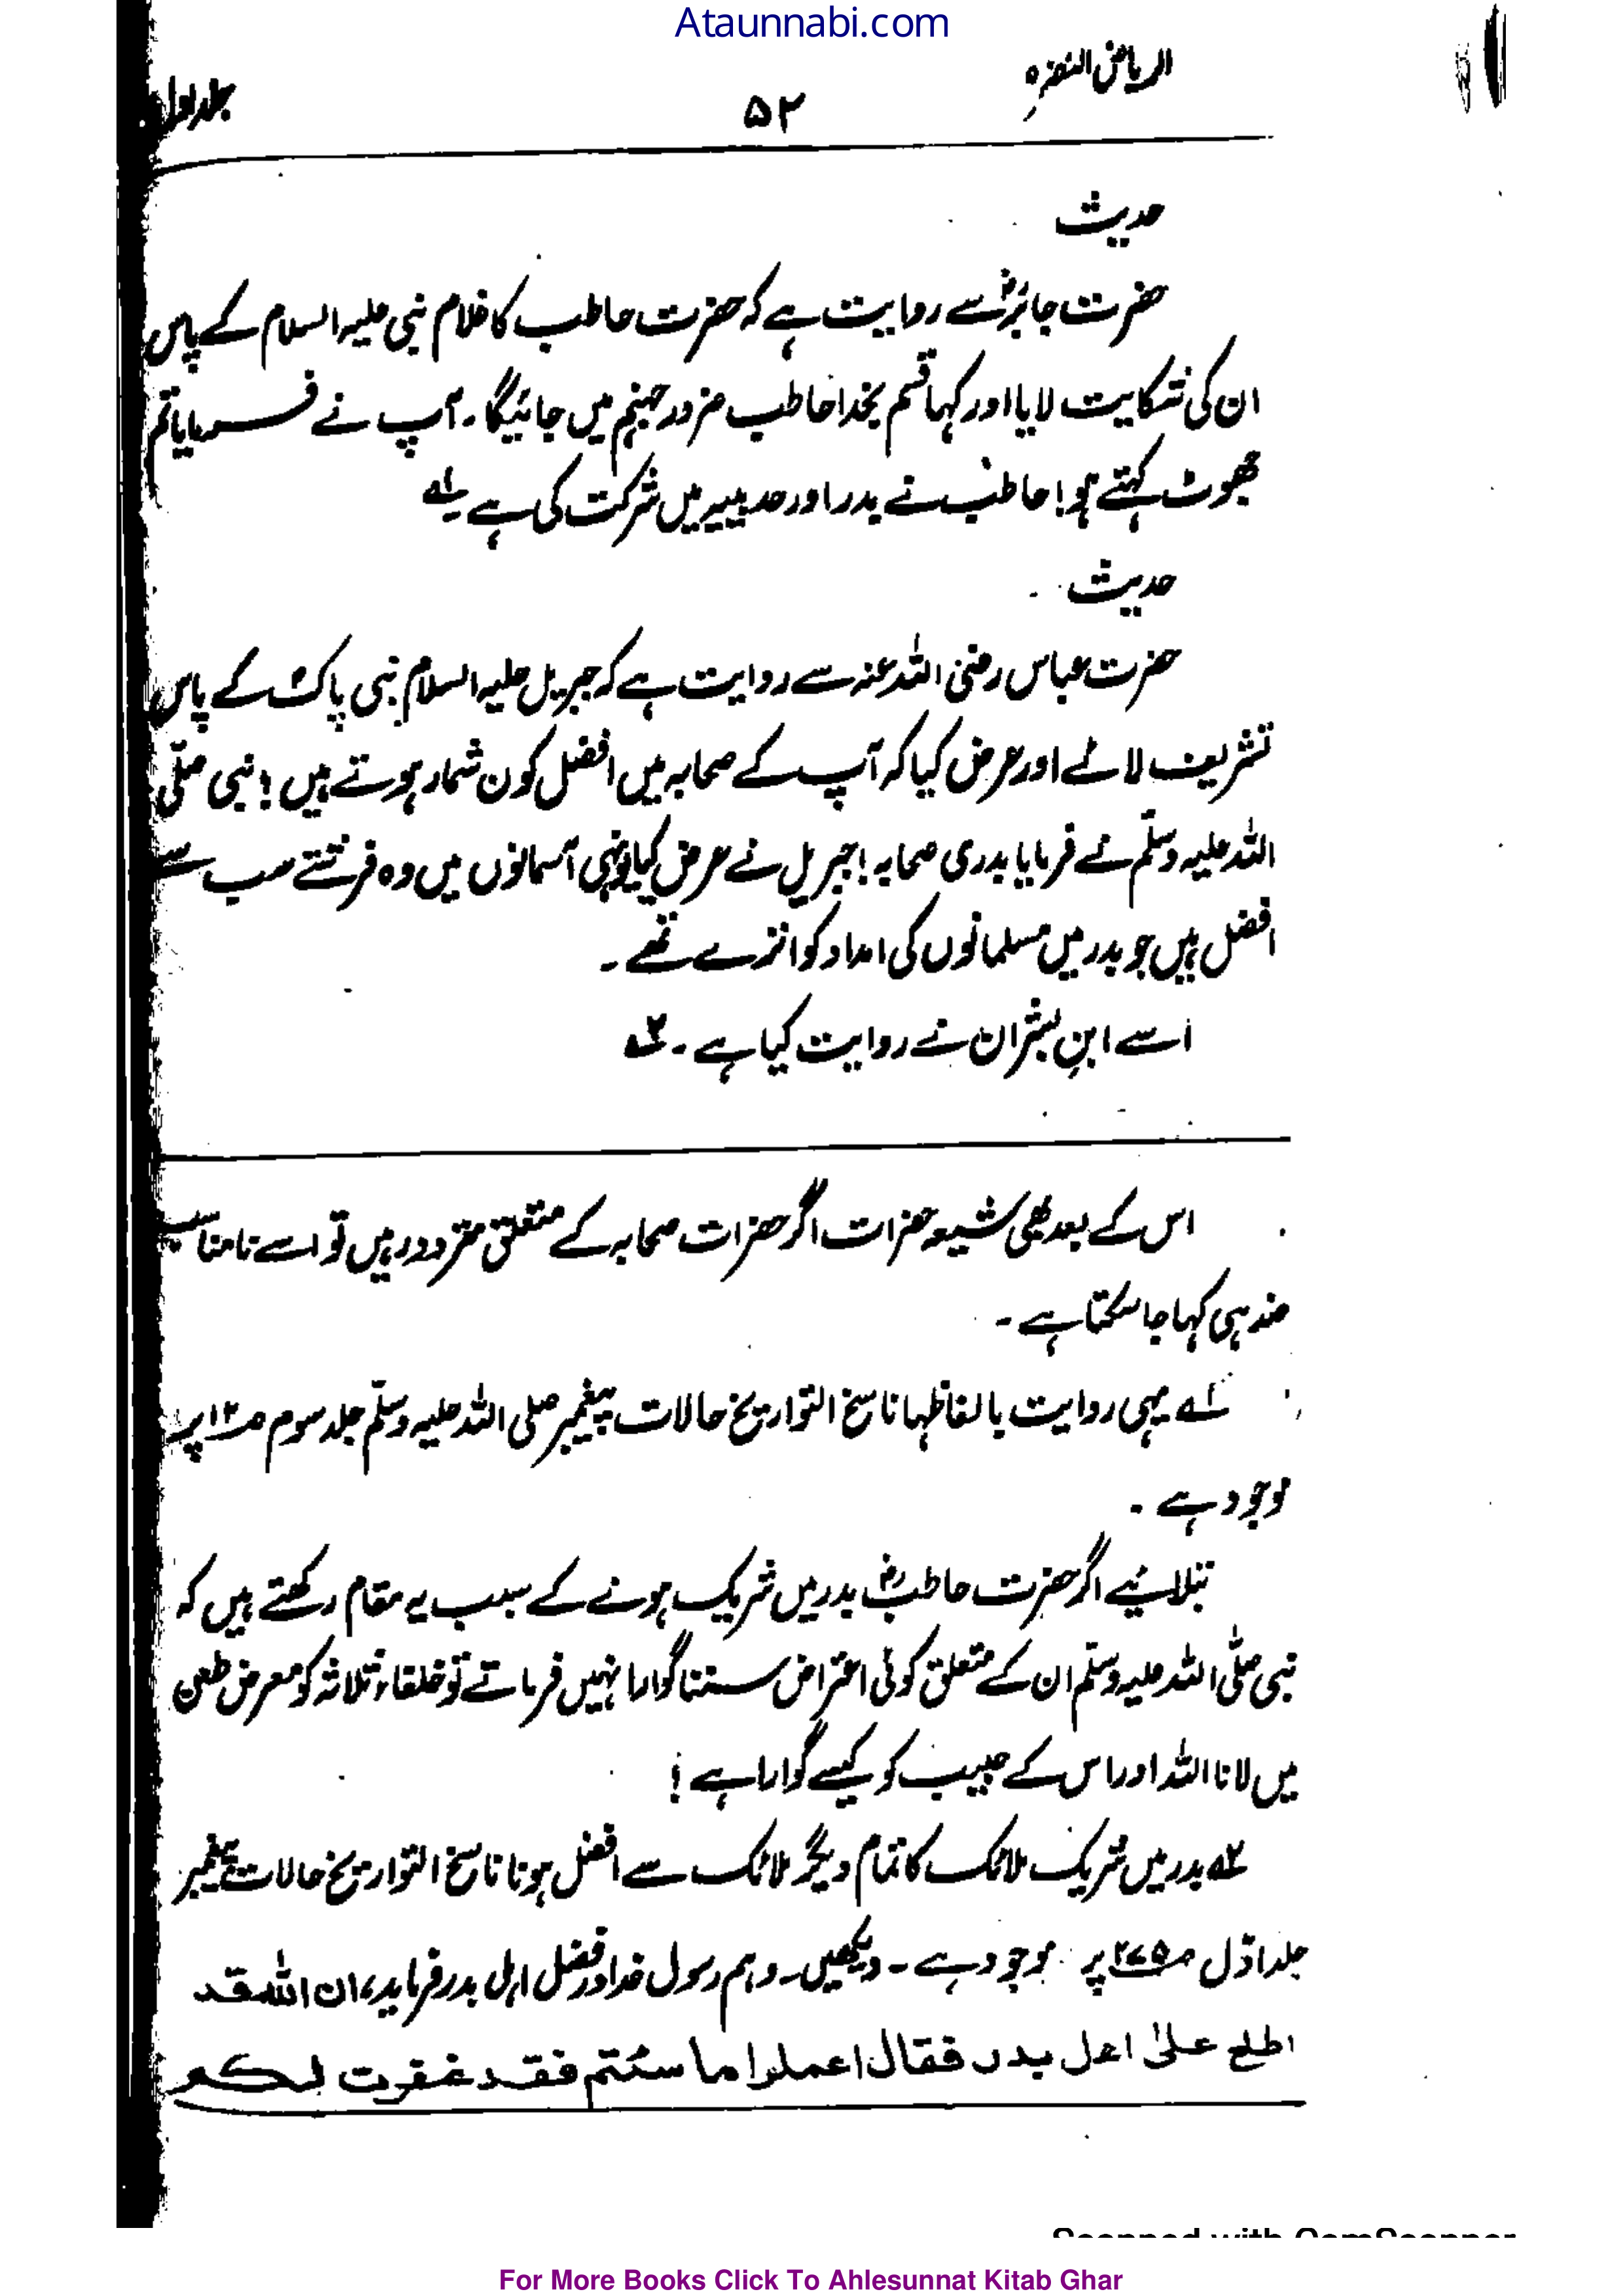 Ataunnabi.com
الریاض النضرہ
۵۲
جلد اول
حدیث
حضرت جابرؓ سے روایت ہے کہ حضرت حاطب کا غلام نبی علیہ السلام کے پاس
ان کی شکایت لایا اور کہا قسم بخدا حاطب ضرور جہنم میں جائیگا۔ آپ نے فرمایا تم
جھوٹ کہتے ہو! حاطب نے بدر اور حدیبیہ میں شرکت کی ہے ۱؎
حدیث
حضرت عباس رضی اللہ عنہ سے روایت ہے کہ جبریل علیہ السلام نبی پاک کے پاس
تشریف لائے اور عرض کیا کہ آپ کے صحابہ میں افضل کون شمار ہوتے ہیں؟ نبی صلّی
اللہ علیہ وسلّم نے فرمایا بدری صحابہ! جبریل نے عرض کیا یونہی آسمانوں میں وہ فرشتے سب سے
افضل ہیں جو بدر میں مسلمانوں کی امداد کو اترے تھے۔
اسے ابنِ بشران نے روایت کیا ہے۔ ۲؎
اس کے بعد بھی شیعہ حضرات اگر حضرات صحابہ کے متعلق متردد رہیں تو اسے نامناسب
ضد ہی کہا جا سکتا ہے۔
۱؎ یہی روایت بالفاظہا ناسخ التواریخ حالات پیغمبر صلی اللہ علیہ وسلّم جلد سوم پر
موجود ہے۔
بتلائیے اگر حضرت حاطبؓ بدر میں شریک ہونے کے سبب یہ مقام رکھتے ہیں کہ
نبی صلّی اللہ علیہ وسلّم ان کے متعلق کوئی اعتراض سننا گوارا نہیں فرماتے تو خلفاء ثلاثہ کو معرض طعن
میں لانا اللہ اور اس کے حبیب کو کیسے گوارا ہے؟
۲؎ بدر میں شریک ملائک کا تمام دیگر ملائک سے افضل ہونا ناسخ التواریخ حالات پیغمبر
جلد اوّل ص ۲۷۵ پر موجود ہے۔ دیکھیں۔ وہم رسول خدا در فضل اہل بدر فرماید، ان اللہ قد
اطلع علیٰ اهل بدر فقال اعملوا ما شئتم فقد غفرت لکم
For More Books Click To Ahlesunnat Kitab Ghar